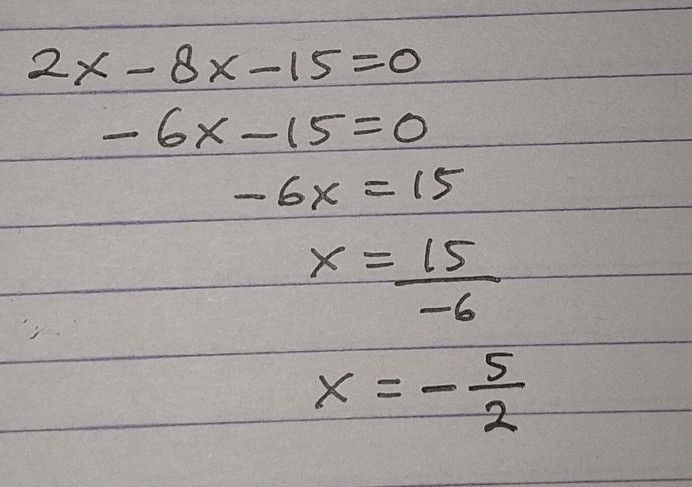 2x - 8x - 15 = 0
- 6x - 15 = 0
- 6x = 15
x = 15/-6
x = - 5/2